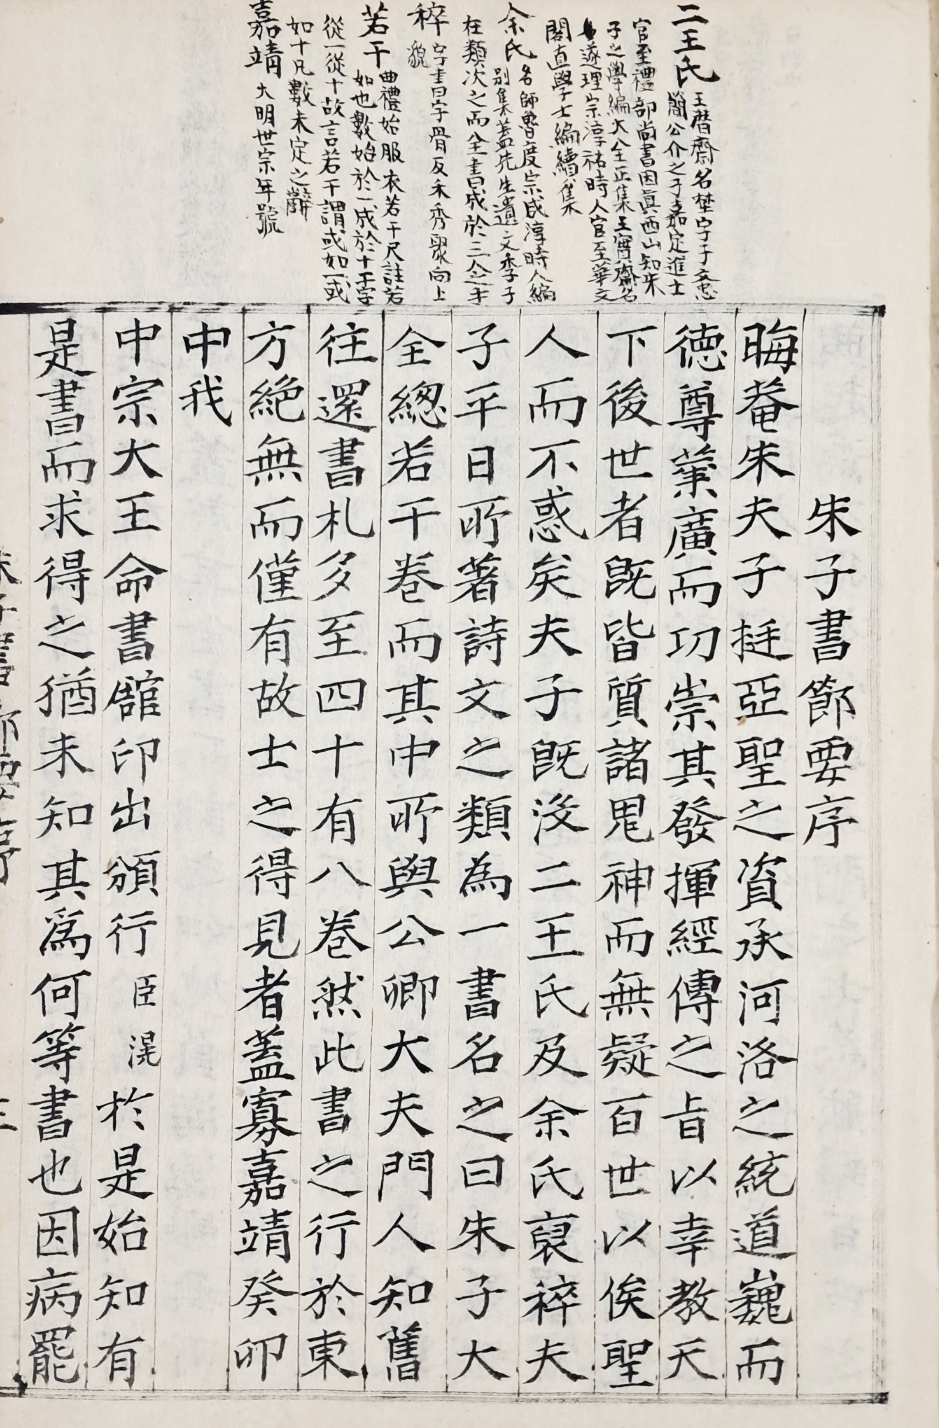 二王氏 王潛齋名埜字子文忠
簡公介之子嘉定進士
官至禮部尚書因眞西山知朱
子之學編大全正集王實齋名
遂理宗淳祐時人官至華文
閣直學士編續集
余氏 名師魯度宗咸淳時人編
別集蓋先生遺文季子
在類次之而全書成於三公手
稡 字書曰字骨反禾秀聚向上
貌
若干 曲禮始服衣若干尺註若
如也數始於一成於十干字
從一從十故言若干謂或如一或
如十凡數未定之辭
嘉靖 大明世宗年號
朱子書節要序
晦菴朱夫子挺亞聖之資承河洛之統道巍而
德尊業廣而功崇其發揮經傳之旨以幸教天
下後世者旣皆質諸鬼神而無疑百世以俟聖
人而不惑矣夫子旣沒二王氏及余氏裒稡夫
子平日所著詩文之類為一書名之曰朱子大
全總若干卷而其中所與公卿大夫門人知舊
往還書札多至四十有八卷然此書之行於東
方絶無而僅有故士之得見者蓋寡嘉靖癸卯
中我
中宗大王命書舘印出頒行臣滉於是始知有
是書而求得之猶未知其爲何等書也因病罷
朱子書節要序 三